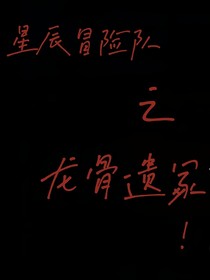 星辰冒险队
之
龙骨遗冢
！